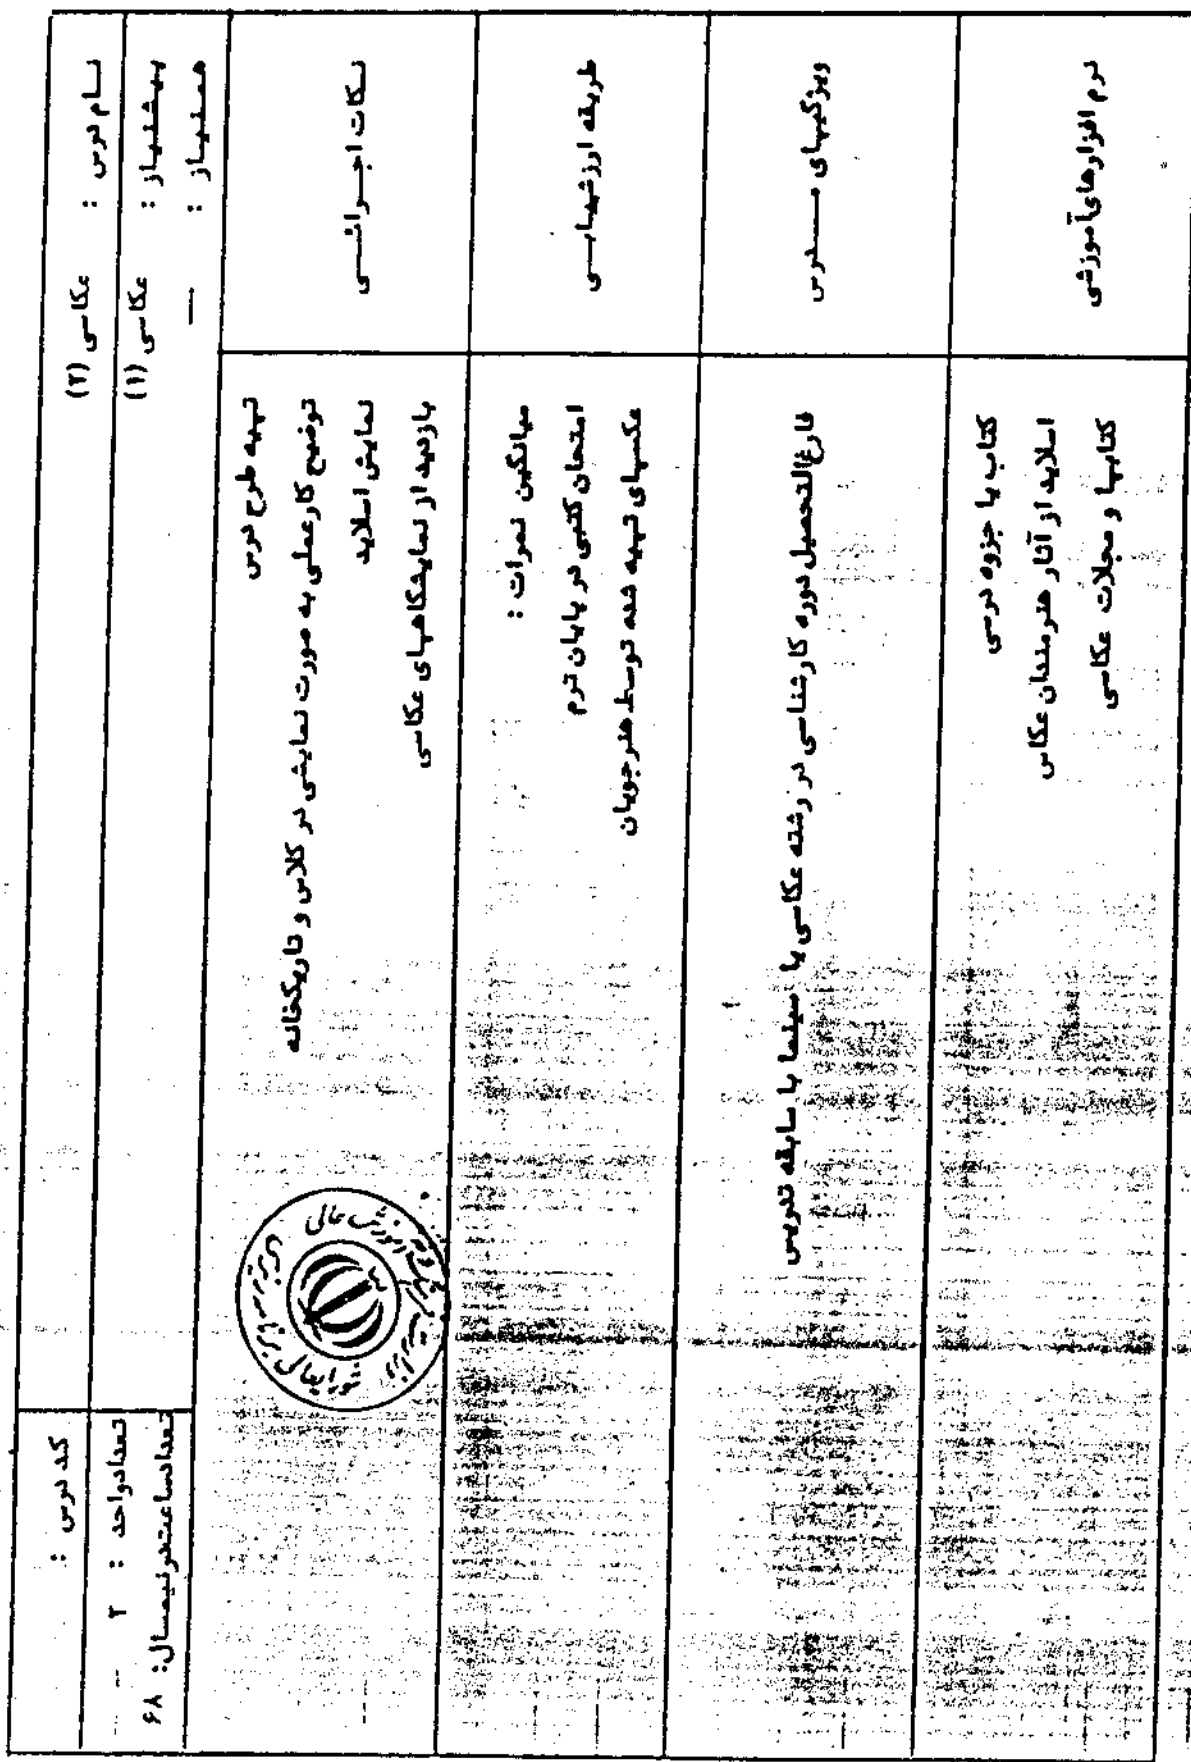 نام درس : عکاسی (۲)
کد درس :
پیشنیاز : عکاسی (۱)
تعداد واحد : ۲
همنیاز : —
تعداد ساعت در نیمسال : ۶۸
نکات اجرائی
تهیه طرح درس
توضیح کار عملی به صورت نمایشی در کلاس و تاریکخانه
نمایش اسلاید
بازدید از نمایشگاههای عکاسی
طریقه ارزشیابی
میانگین نمرات :
امتحان کتبی در پایان ترم
عکسهای تهیه شده توسط هنرجویان
ویژگیهای مدرس
فارغ‌التحصیل دوره کارشناسی در رشته عکاسی یا سینما با سابقه تدریس
نرم افزارهای آموزشی
کتاب یا جزوه درسی
اسلاید از آثار هنرمندان عکاس
کتابها و مجلات عکاسی
شورایعالی برنامه ریزی
آموزش عالی